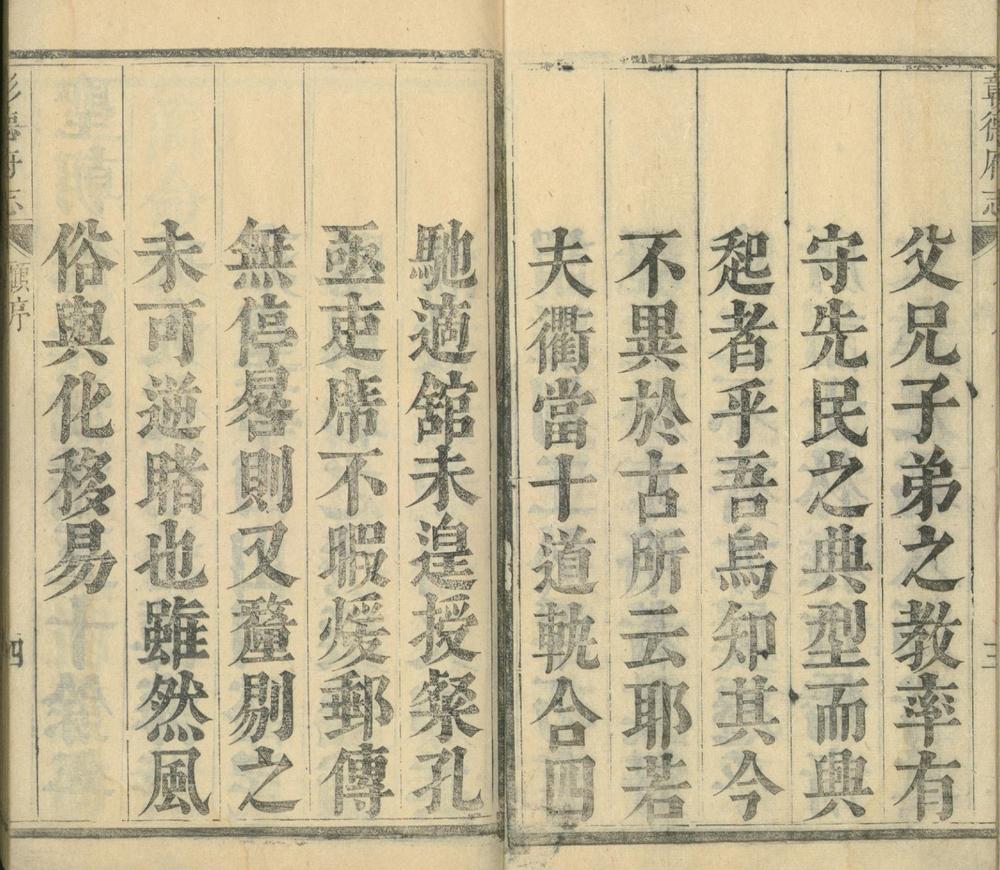 彰德府志
三
父兄子弟之教率有
守先民之典型而興
起者乎吾烏知其今
不異於古所云耶若
夫衢當十道軌合四
馳適舘未遑授粲孔
亟吏席不暇煖郵傳
無停晷則又釐剔之
未可逆睹也雖然風
俗與化移易
彰德府志
顧序
四